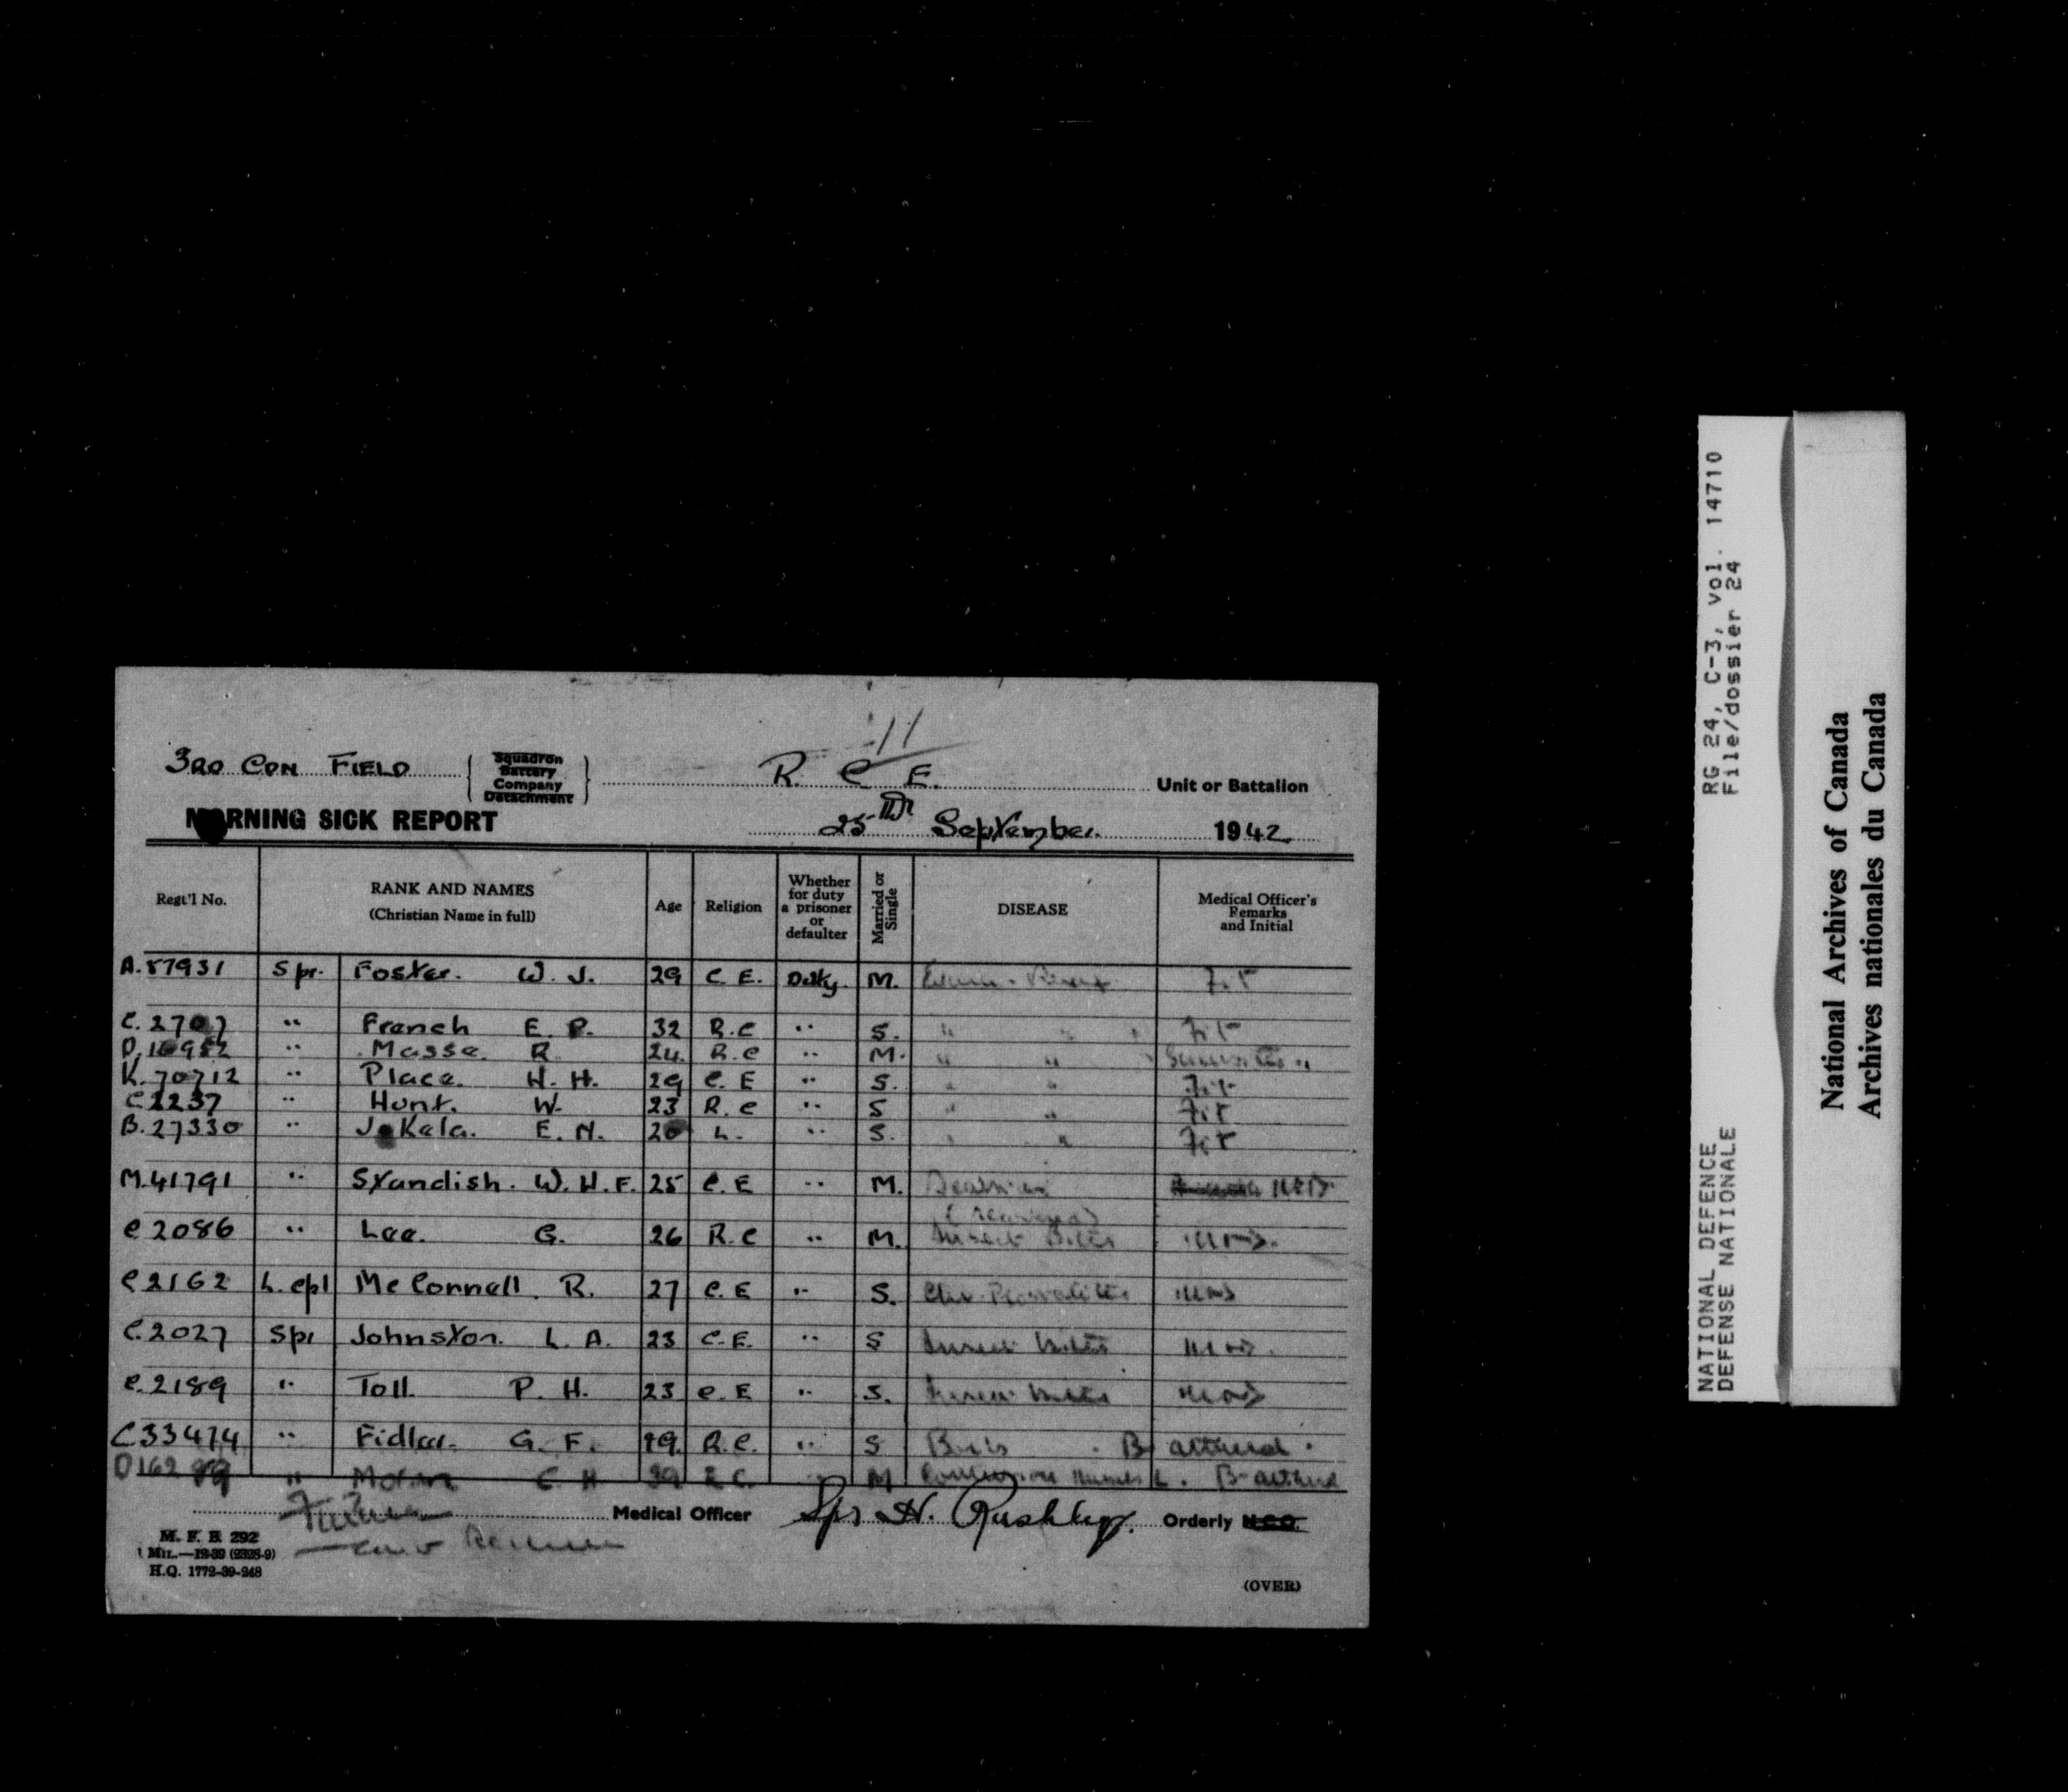 11
3RD CDN FIELD { Squadron Battery Company Detachment } R. C. E. Unit or Battalion
MORNING SICK REPORT 25th September 1942
Regt'l No. RANK AND NAMES (Christian Name in full) Age Religion Whether for duty a prisoner or defaulter Married or Single DISEASE Medical Officer's Remarks and Initial
A.57931 Spr. Foster. W. J. 29 C. E. Duty. M. Fit
C.2707 " French E. P. 32 R.C " S. " " Fit
D.16952 " Masse. R. 24. R.C " M. " "
K.70712 " Place. H. H. 29 C. E " S. " " Fit
C2237 " Hunt. W. 23 R. C " S " " Fit
B.27330 " Jokela. E. N. 20 L. " S. " " Fit
M.41791 " Standish. W. H. F. 25 C. E " M.
C 2086 " Lee. G. 26 R. C " M. Insect Bites M & D.
C 2162 L. Cpl McConnell. R. 27 C. E " S. M & D
C.2027 Spr Johnston. L. A. 23 C. E. " S Insect bites M & D.
C.2189 " Toll. P. H. 23 C. E " S. Insect bites M & D
C33474 " Fidler. G. F. 19. R. C. " S Boils B attend.
D162 " C H M L. B-attend
Medical Officer Spr H. Orderly N.C.O.
M. F. B 292
1 MIL.—12-39 (2328-9)
H.Q. 1772-39-248
(OVER)
RG 24, C-3, vol. 14710
File/dossier 24
NATIONAL DEFENCE
DEFENSE NATIONALE
National Archives of Canada
Archives nationales du Canada